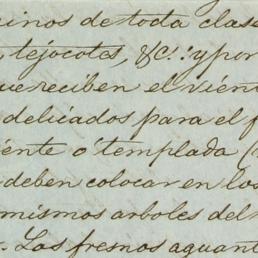 inos de toda clase
tejocotes, &c.: y por
que reciben el vient
delicados para el f
ente o' templada (
deben colocar en los
mismos arboles del
. Los fresnos aguant